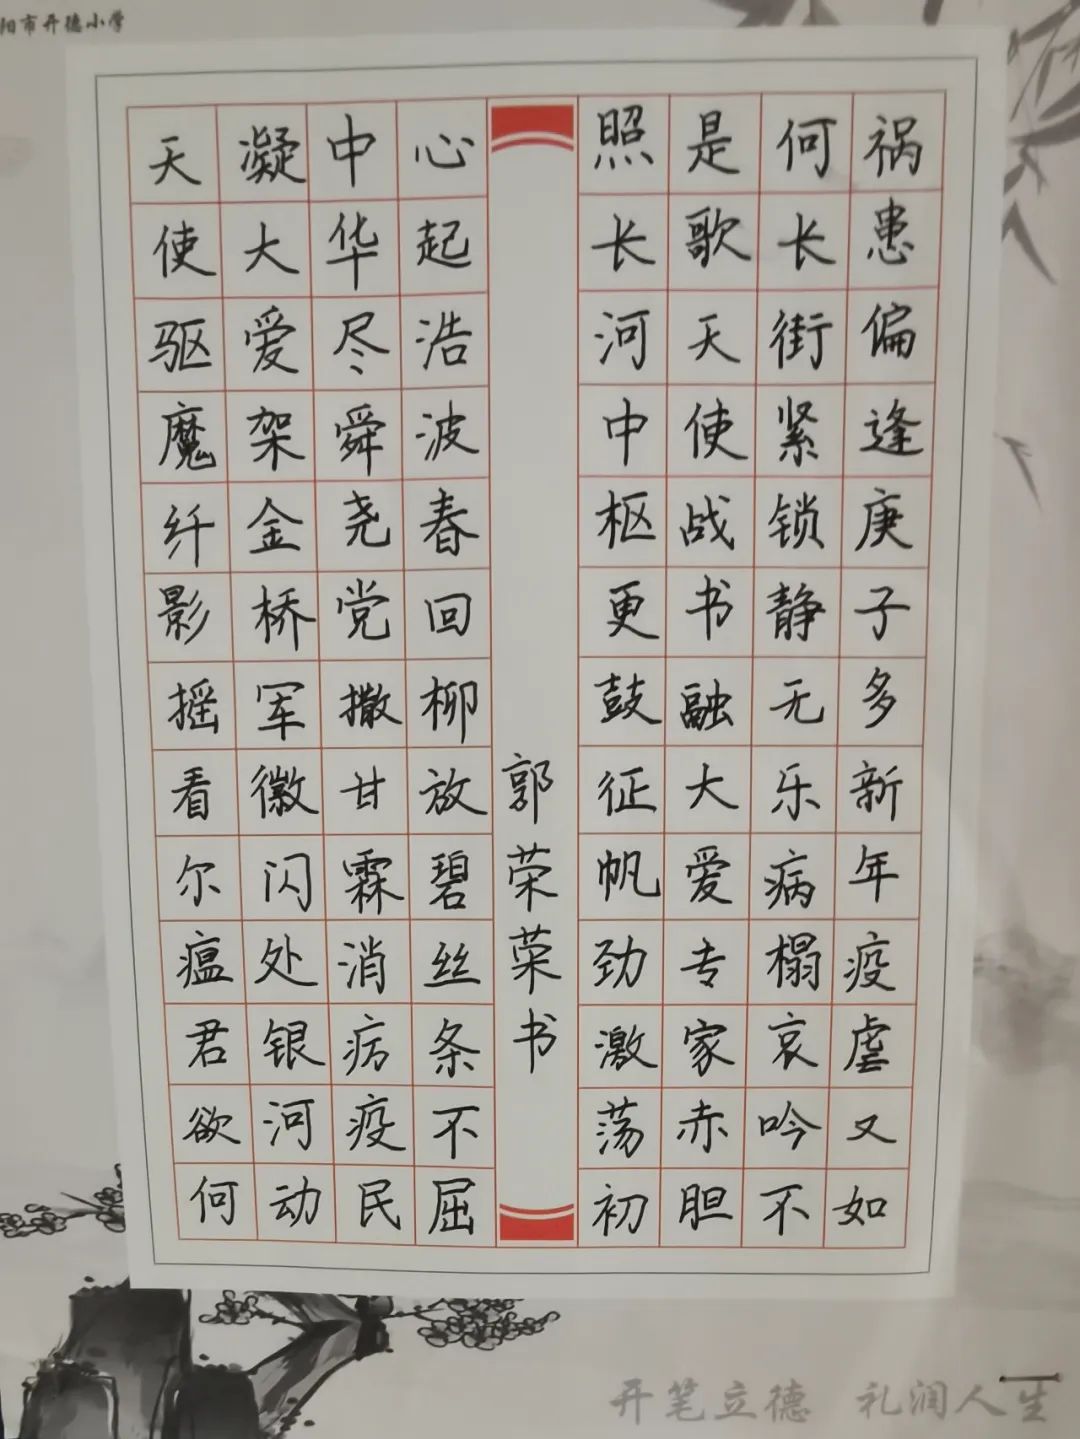 阳市开德小学
祸患偏逢庚子多新年疫虐又如
何长街紧锁静无乐病榻哀吟不
是歌天使战书融大爱专家赤胆
照长河中枢更鼓征帆劲激荡初
心起浩波春回柳放碧丝条不屈
中华尽舜尧党撒甘霖消疠疫民
凝大爱架金桥军徽闪处银河动
天使驱魔纤影摇看尔瘟君欲何
郭荣菜书
开笔立德 礼润人生